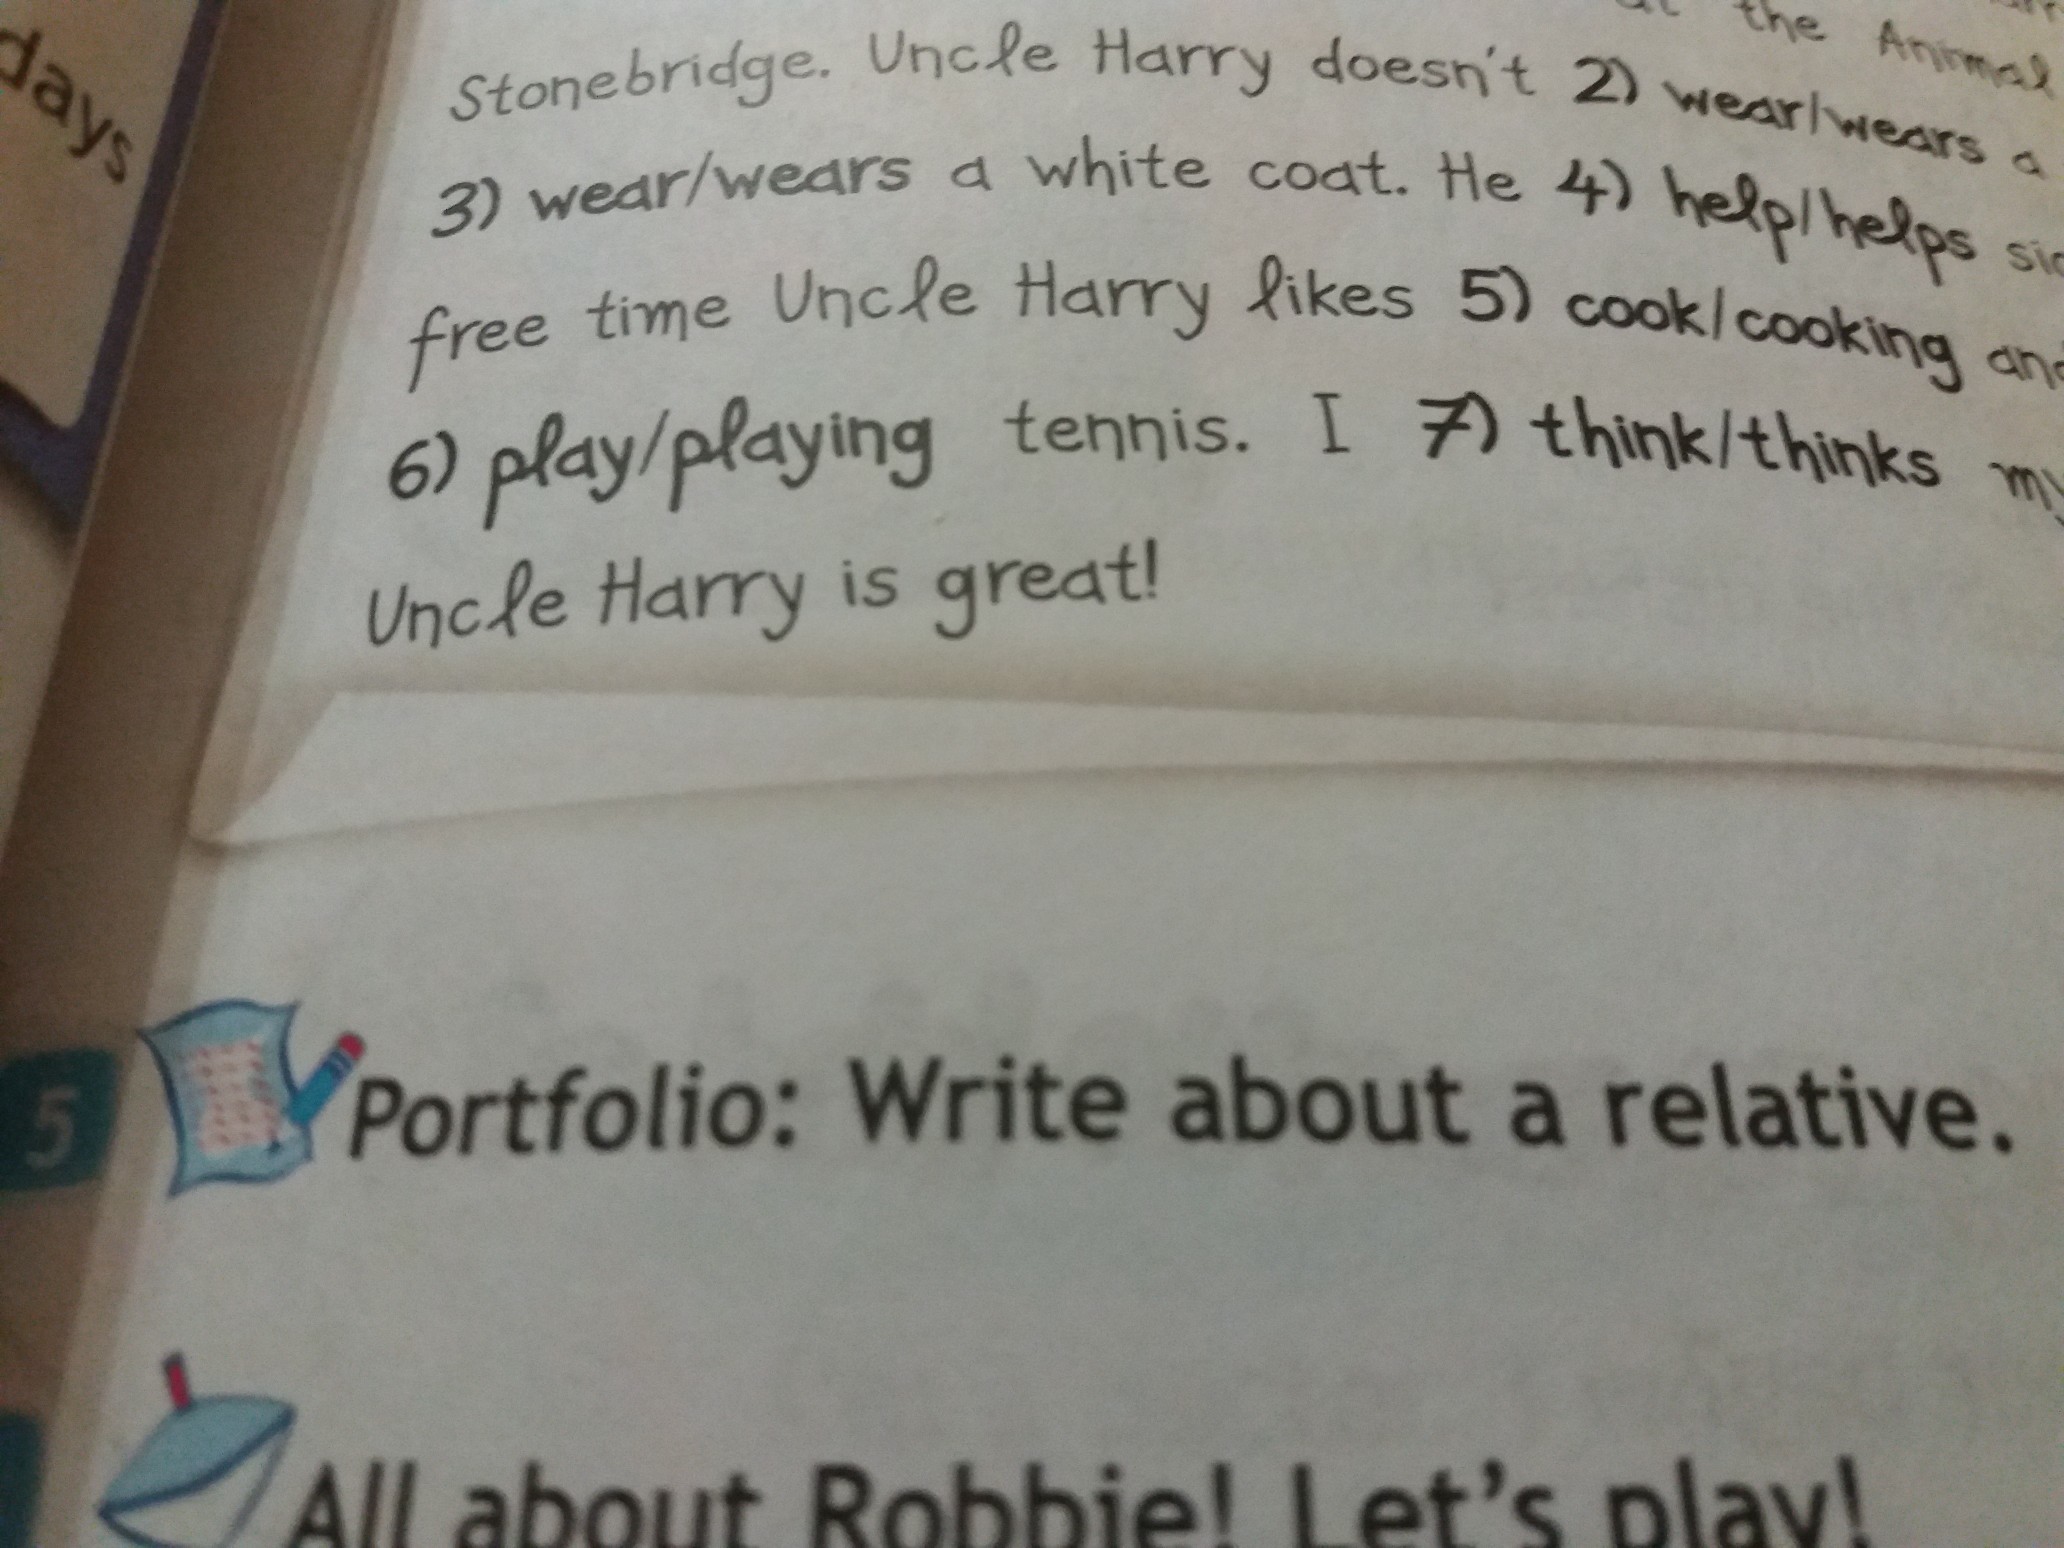 days
the Animal
Stonebridge. Uncle Harry doesn't 2) wear/wears a
3) wear/wears a white coat. He 4) help/helps
free time Uncle Harry likes 5) cook/cooking
6) play/playing tennis. I 7) think/thinks my
Uncle Harry is great!
5 Portfolio: Write about a relative.
All about Robbie! Let's play!